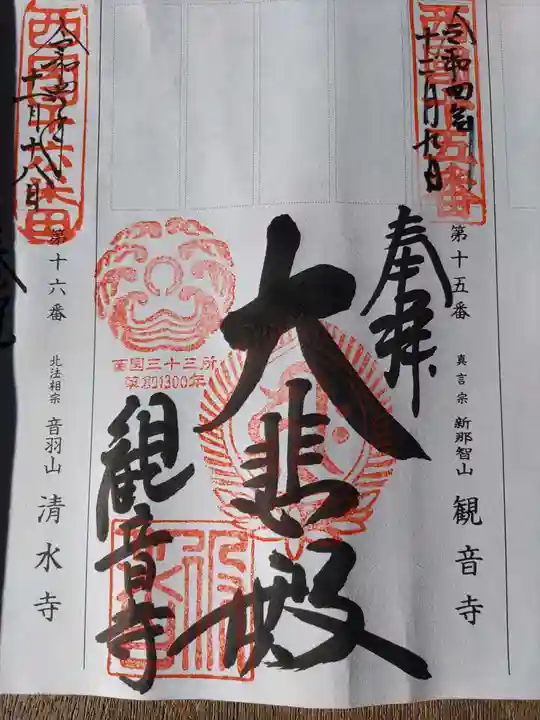 西国十五番
令和四年
十二月九日
第十五番 真言宗 新那智山 観音寺
奉拝
大悲殿
西国三十三所
草創1300年
観音寺
第十六番 北法相宗 音羽山 清水寺
十二月十八日